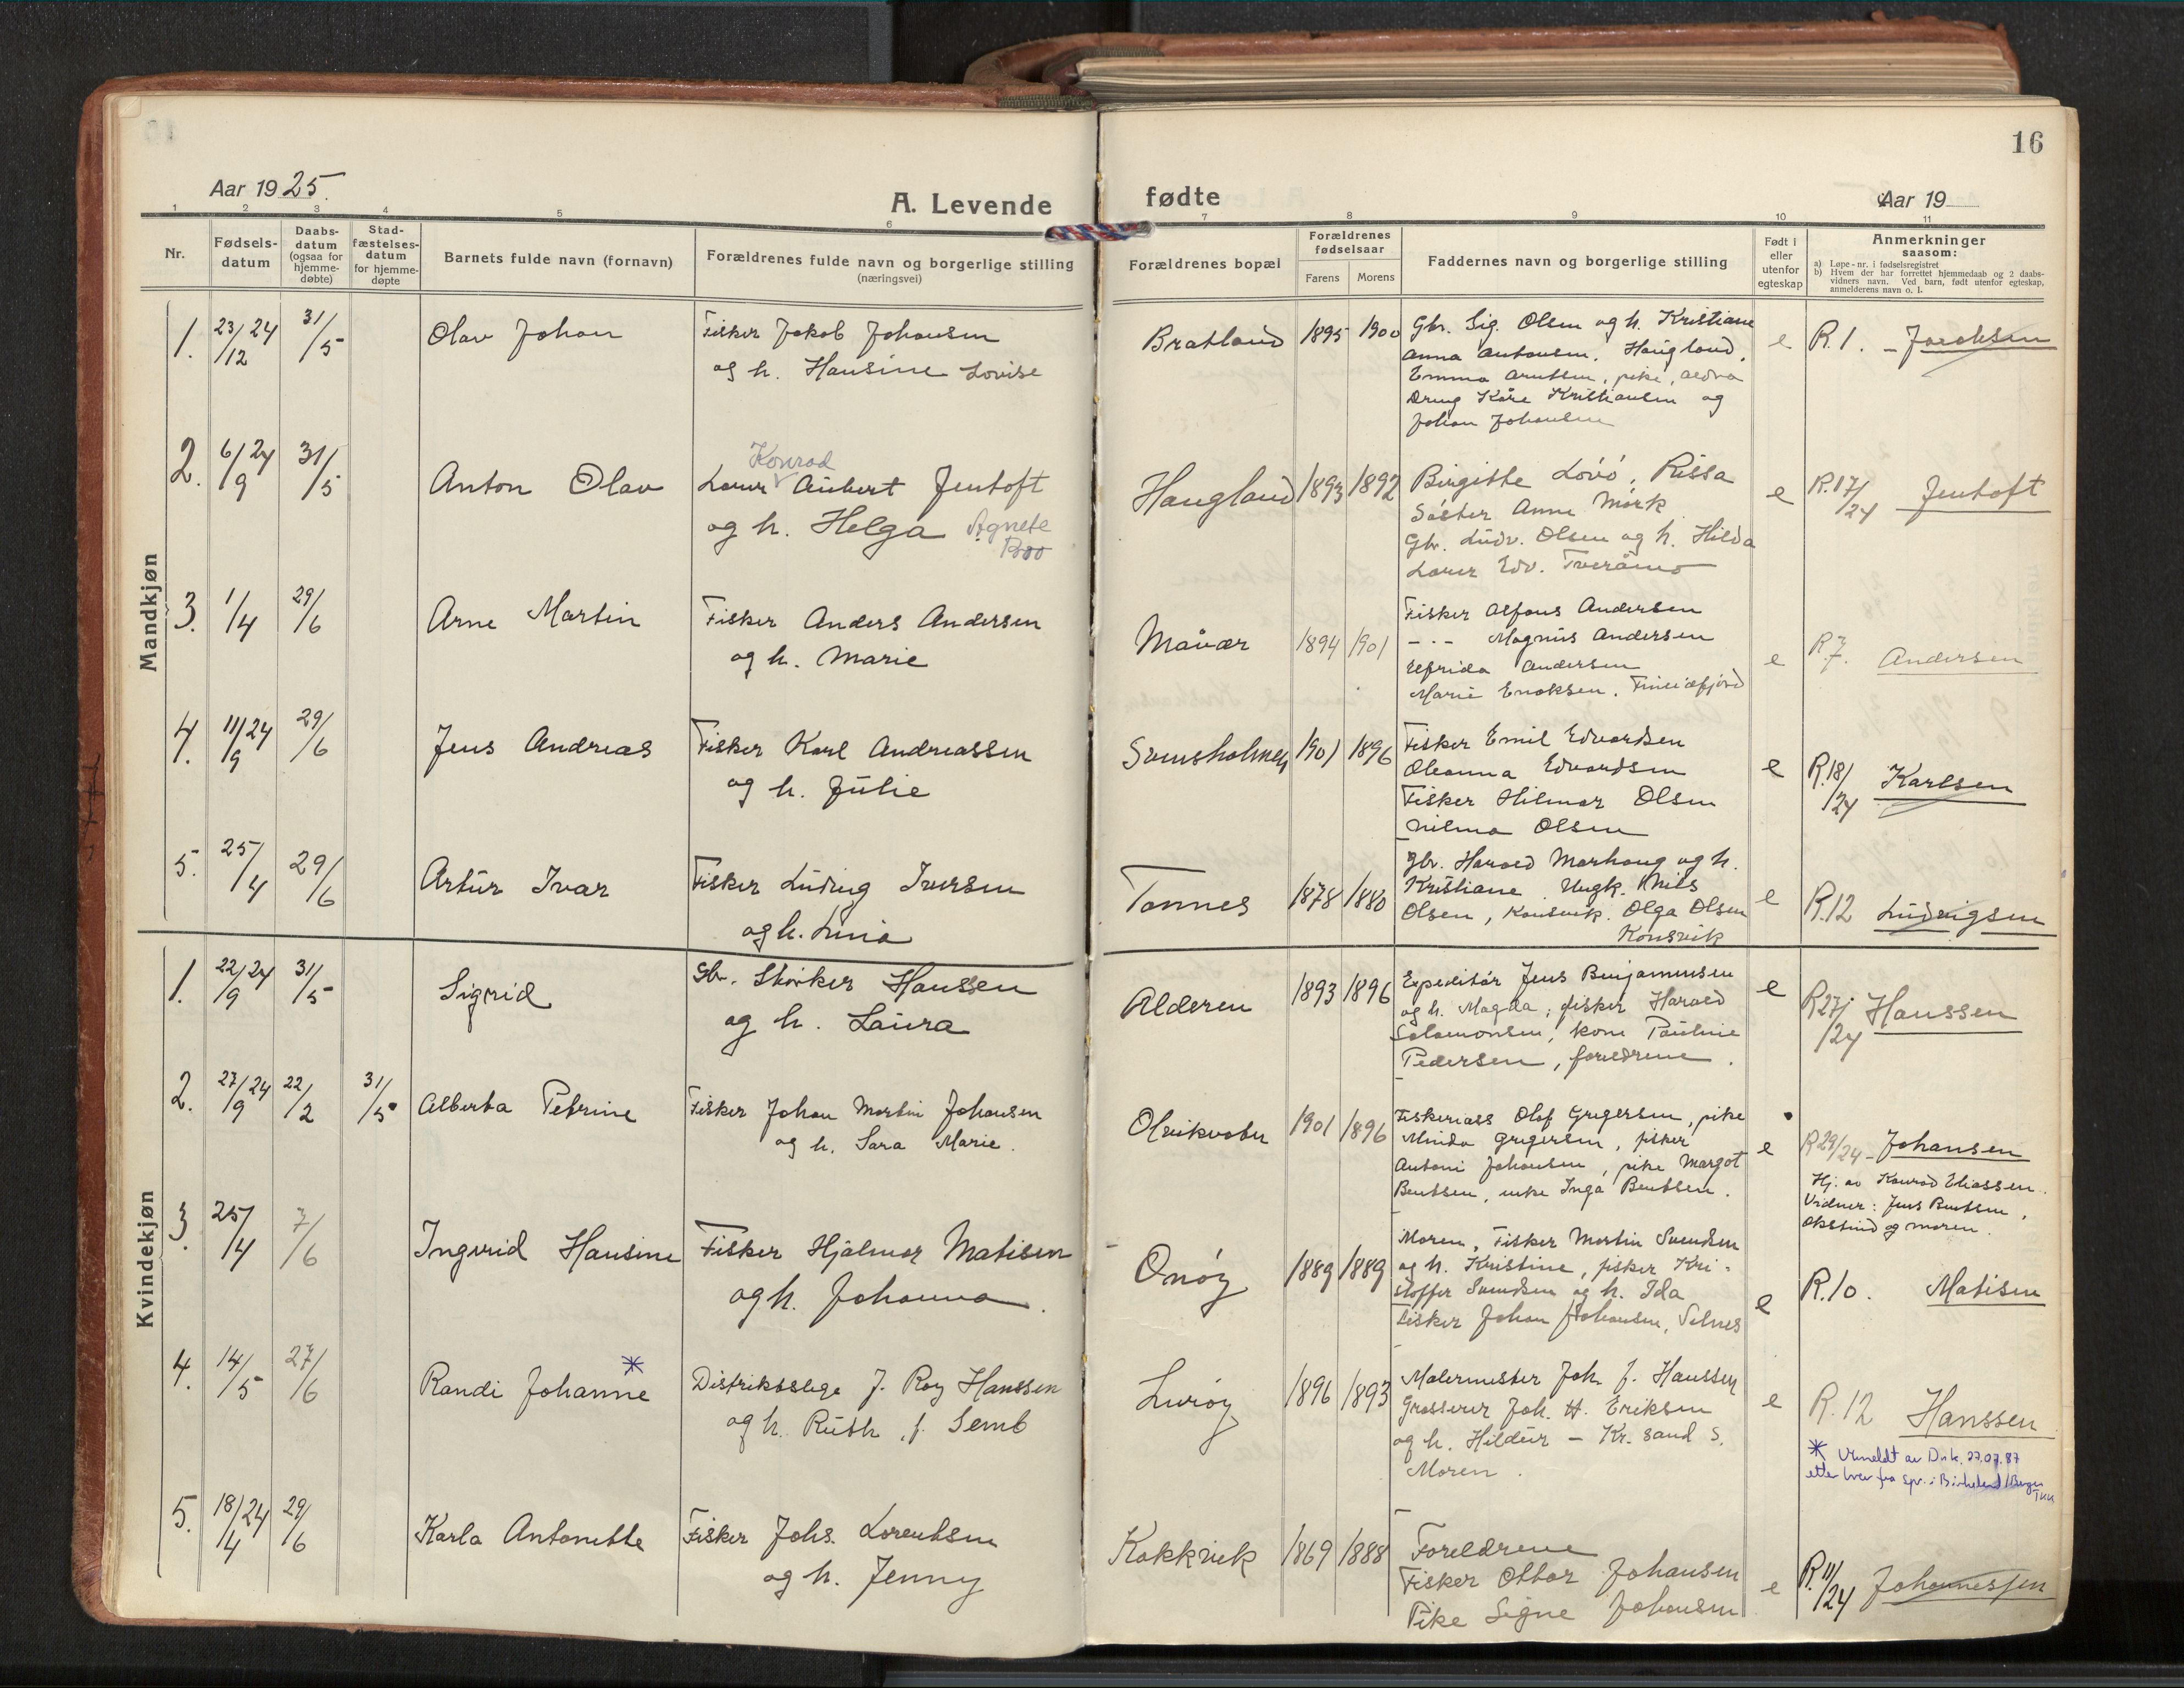 16
Aar 19 25.
A. Levende
fødte
Aar 19
1 2 3 4 5 6 7 8 9 10 11
Nr.
Fødsels-
datum
Daabs-
datum
(ogsaa for
hjemme-
døbte)
Stad-
fæstelses-
datum
for hjemme-
døpte
Barnets fulde navn (fornavn)
Forældrenes fulde navn og borgerlige stilling
(næringsvei)
Forældrenes bopæl
Forældrenes
fødselsaar
Farens Morens
Faddernes navn og borgerlige stilling
Født i
eller
utenfor
egteskap
Anmerkninger
saasom:
a) Løpe-nr. i fødselsregistret
b) Hvem der har forrettet hjemmedaab og 2 daabs-
vidners navn. Ved barn, født utenfor egteskap,
anmelderens navn o. l.
Mandkjøn
1. 23/12 24 31/5 Olav Johan
Fisker Jakob Johansen
og h. Hansine Lovise
Bratland 1895 1900
Gbr. Sig. Olsen og h. Kristiane
Anna Antonsen, Haugland,
Emma Arntsen, pike, Aldra
Dreng Kåre Kristiansen og
Johan Johansen
e R.1. – Jacobsen
2. 6/9 24 31/5 Anton Olav
Konrad
Lærer Aubert Jentoft
og h. Helga Agnete
Boo
Haugland 1893 1892
Birgitte Lövö, Rissa
Söster Anne Mörk
Gbr. Ludv. Olsen og h. Hilda
Lærer Edv. Tveråmo
e R.17/24 Jentoft
3. 1/4 29/6 Arne Martin
Fisker Anders Andersen
og h. Marie
Måvær 1894 1901
Fisker Alfons Andersen
– · – Magnus Andersen
Elfrida Andersen
Marie Enoksen. Fineidfjord
e R.7. Andersen
4. 11/9 24 29/6 Jens Andreas
Fisker Karl Andreassen
og h. Julie
Svensholmen 1901 1896
Fisker Emil Edvardsen
Oleanna Edvardsen
Fisker Hilmar Olsen
Vilma Olsen
e R.18/24 Karlsen
5. 25/4 29/6 Artur Ivar
Fisker Ludvig Iversen
og h. Lina
Tonnes 1878 1880
Gbr. Harald Marhaug og h.
Kristiane Ungk. Nils
Olsen, Konsvik. Olga Olsen
Konsvik
e R.12 Ludvigsen
Kvindekjøn
1. 22/9 24 31/5 Sigrid
Gbr. Storker Hanssen
og h. Laura
Alderen 1893 1896
Expeditör Jens Benjaminsen
og h. Magda; fisker Harald
Salamonsen, kone Pauline
Pedersen, foreldrene.
e R27/24 Hanssen
2. 27/9 24 22/2 31/5 Alberta Petrine
Fisker Johan Martin Johansen
og h. Sara Marie.
Olvikvatn 1901 1896
Fiskeriass Olaf Gregersen, pike
Minda Gregersen, fisker
Antoni Johansen, pike Margot
Bentsen, enke Inga Bentsen.
e R29/24 – Johansen
Hj. av Konrad Eliassen.
Vidner: Jens Bentsen,
Okstind og moren.
3. 25/4 7/6 Ingvrid Hansine
Fisker Hjalmar Matisen
og h. Johanna.
Onöy 1889 1889
Moren, Fisker Martin Svendsen
og h. Kristine, fisker Kri-
stoffer Svendsen og h. Ida
Fisker Johan Johansen, Selnes
e R.10. Matisen
4. 14/5 27/6 Randi Johanne *
Distriktslege J. Roy Hanssen
og h. Ruth, f. Semb
Luröy 1896 1893
Malermester Joh. J. Hanssen
Grosserer Joh. H. Eriksen
og h. Hildur – Kr. sand S.
Moren.
e R.12 Hanssen
* Utmeldt av D.n.k. 27.07.87
etter brev fra spr. i Birkeland/Bergen
5. 18/4 24 29/6 Karla Antonette
Fisker Johs. Lorentsen
og h. Jenny
Kokkvik 1869 1888
Foreldrene
Fisker Ottar Johansen
Pike Signe Johansen
e R.11/24 Johannessen